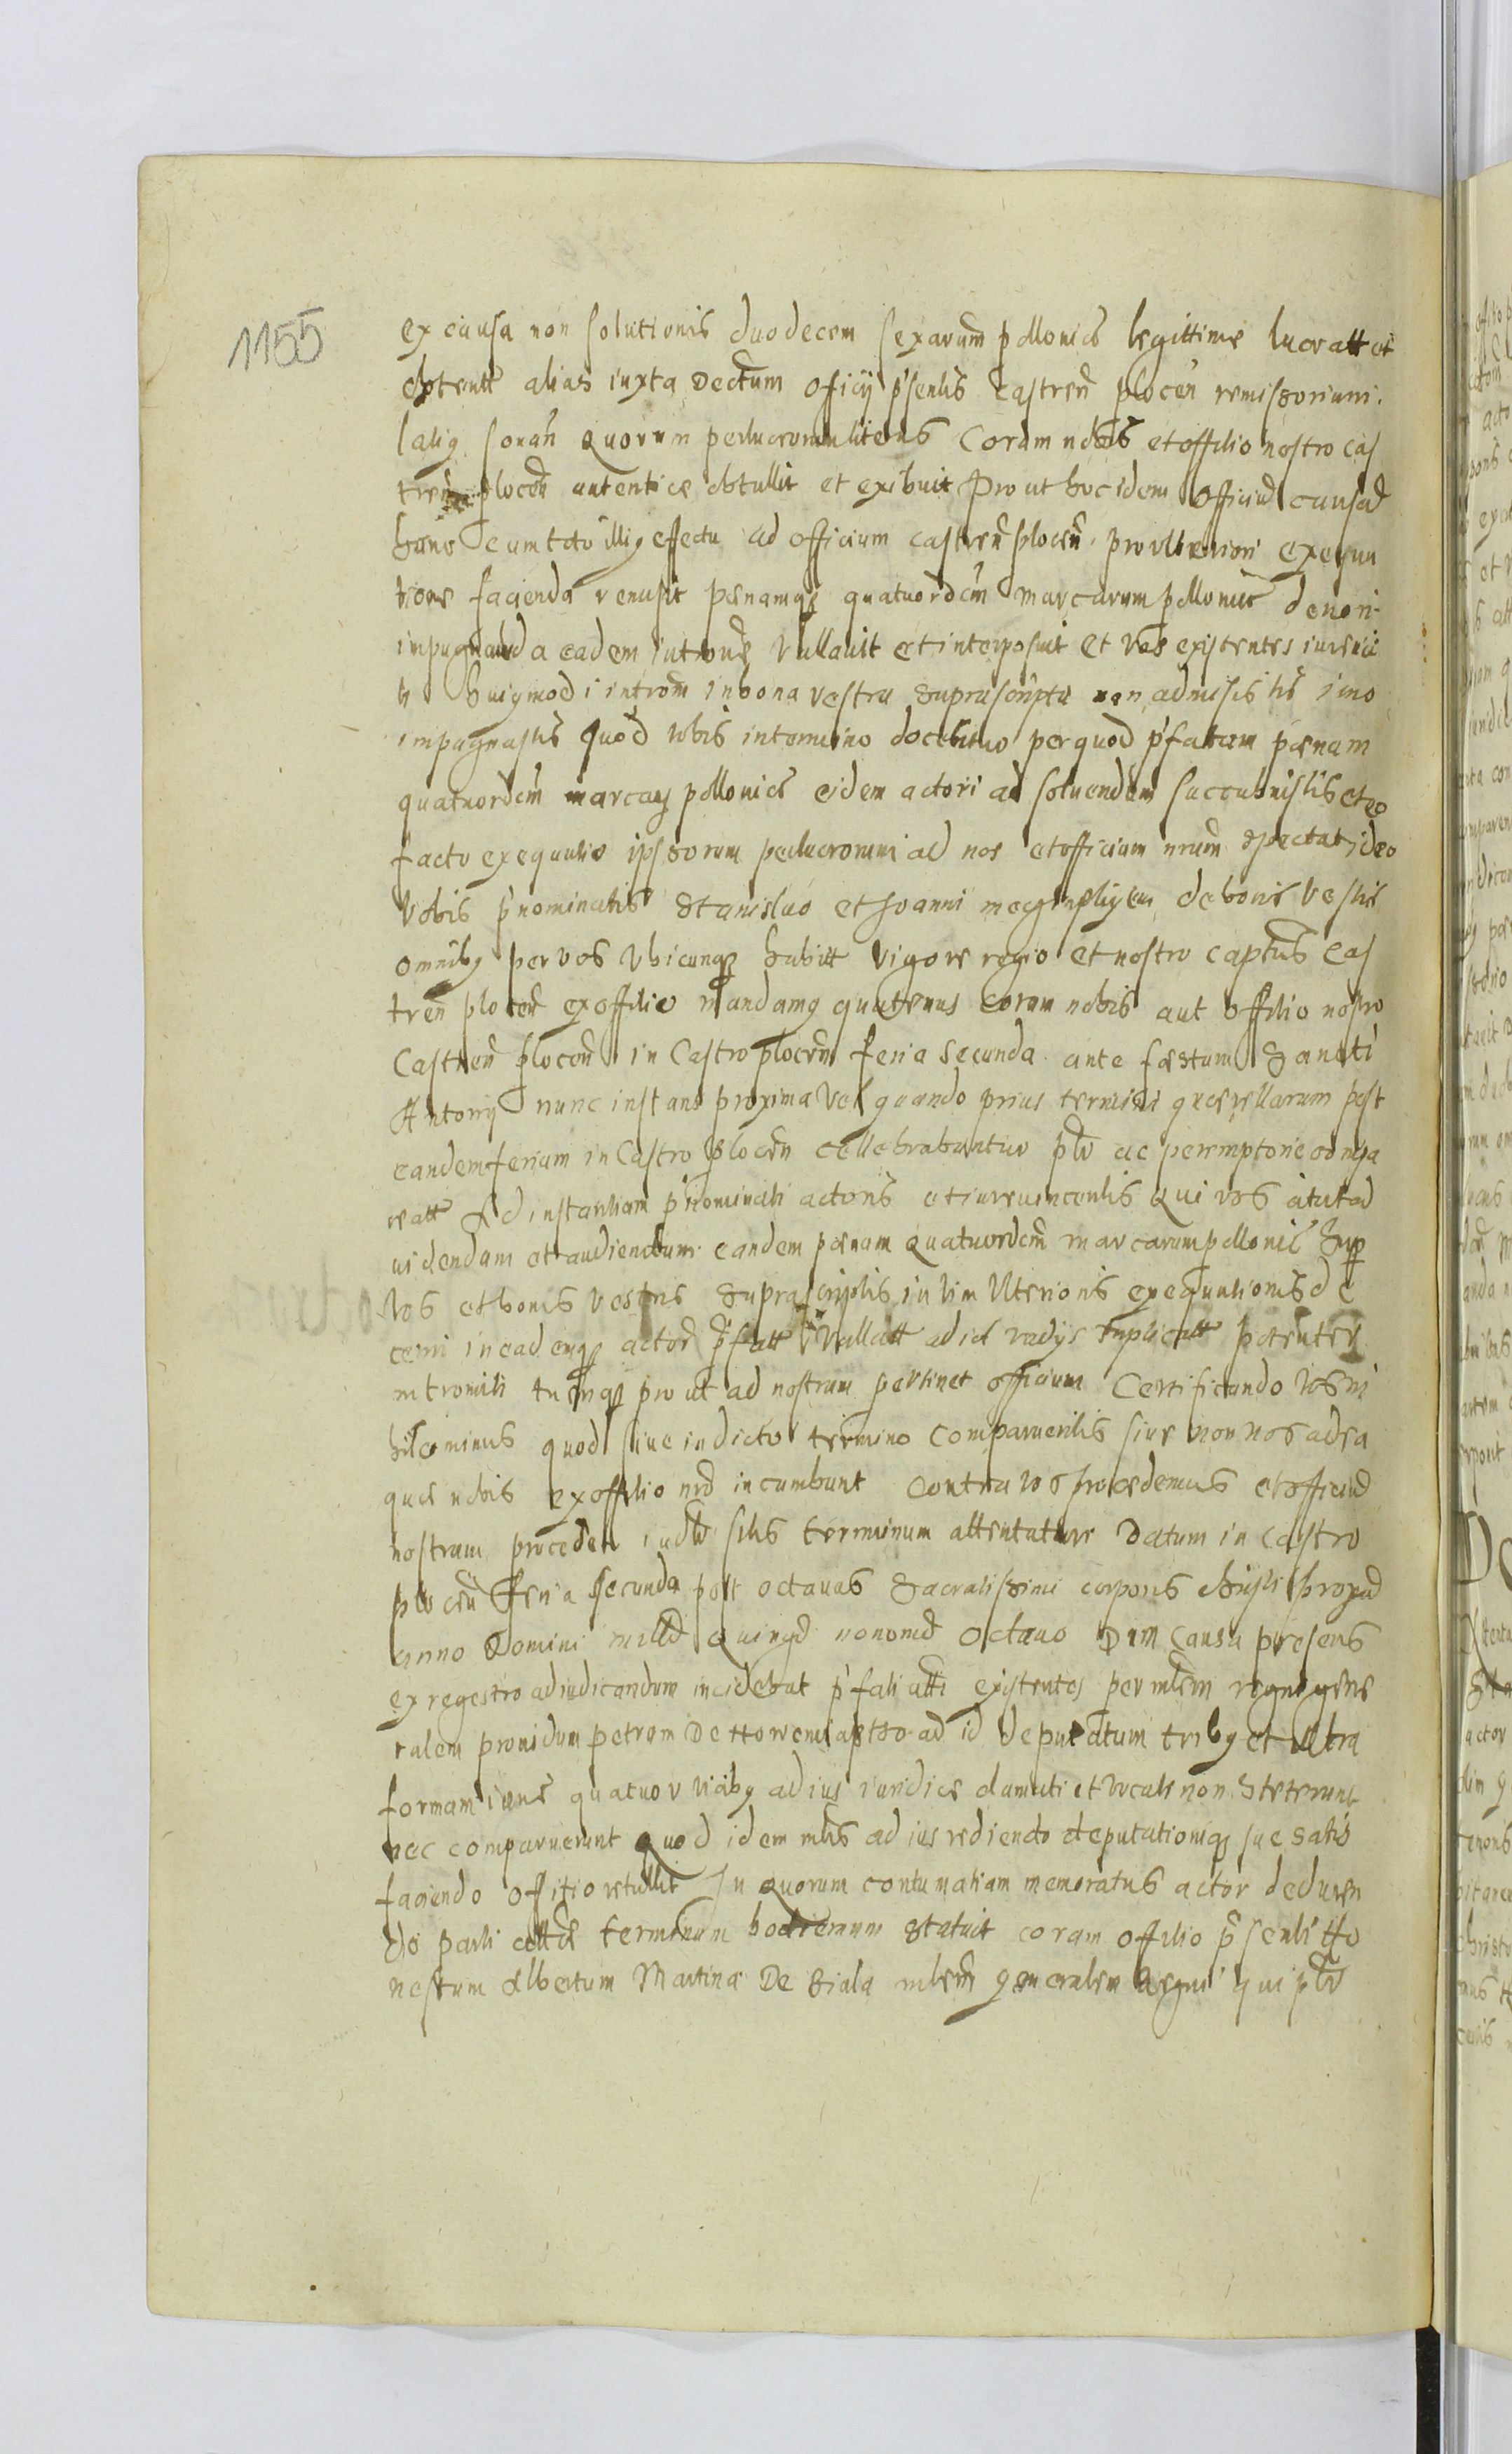 1155
ex causa non solutionis duodecem sexarum pollonics legittime lucratt et
obtentt alias iuxta Dectum oficij psentis Castren plocen remissorium
latiq sonan quorum perlucrorum literas Coram nobis et offitio nostro cas
tren plocen autentice obtullit et exibuit Prout hoc idem officiu causa
hanc cum toto illiq effectu ad officium castren plocen pro ulteriori exequu
tione facienda remisit penamqz quatuordcim marcarum pollonic de non
inpugnanda eadem introne Vallauit et interposuit Et Vos existentes iureuic
ti huigmodi introm in bona vestra suprascripta non admisistis imo
impugnastis quod vobis in termino docebitur per quod pfatam penam
quatuordcim marcarz pollonics eidem actori ad soluendem succubuistis et eo
facto exequutio ipsorum perlucrorum ad nos et officium nrum spectat ideo
Vobis pnominatis Stanislao et Joanni de bonis Vestris
omnibq per vos Vbicunqz habitt Vigore regio et nostro captus Cas
tren plocen ex offitio mandamq quatenus coram nobis aut offitio nostro
Castren plocen in Castro plocen feria secunda ante festum Sancti
Antonij nunc instans proxima vel quando prius termini querellarum post
eandem feriam in Castro plocen cellebrabuntur plr ac peremptorie compa
reatt Ad instantiam pnominati actoris et iureuincentis Qui vos citat ad
uidendam et audiendum eandem penam Quatuordcim marcarum pollonic Sup
Vos et bonis vestris suprascriptis in Vim Vlterioris exequutionis de
cerni in eademqz actore pfatt Vallatt ad id vadijs tuplicatt potenter
intromitti tueriqz prout ad nostrum pertinet officium Certificando Vos ni
hilominus quod siue in dicto termino Comparueritis siue non nos ad ea
que nobis ex offitio nro incumbunt Contra vos procedemus et officiu
nostrum procedet iudtr sitis terminum attentature Datum in Castro
plocen Feria secunda post octauas Sacratissimi corporis christi proxa
anno Domini milld Quingd nonomd octauo Dum Causa presens
ex regestro adiudicandum incidebat pfati atti existentes per mlem regni gene
ralem prouidum petrum De ad id deputatum tribq et ultra
formam iuris quatuor vicibq ad ius iuridice clamati et vocati non Steterunt
nec comparuerunt Quod idem mlis ad ius rediendo deputationiqz sue satis
faciendo offitio retullit In Quorum contumatiam memoratus actor deducen
do parti terminum hodiernum Statuit coram offitio psenti Ho
nestum Albertum Martina De Biala mlem generalem Regni qui plr